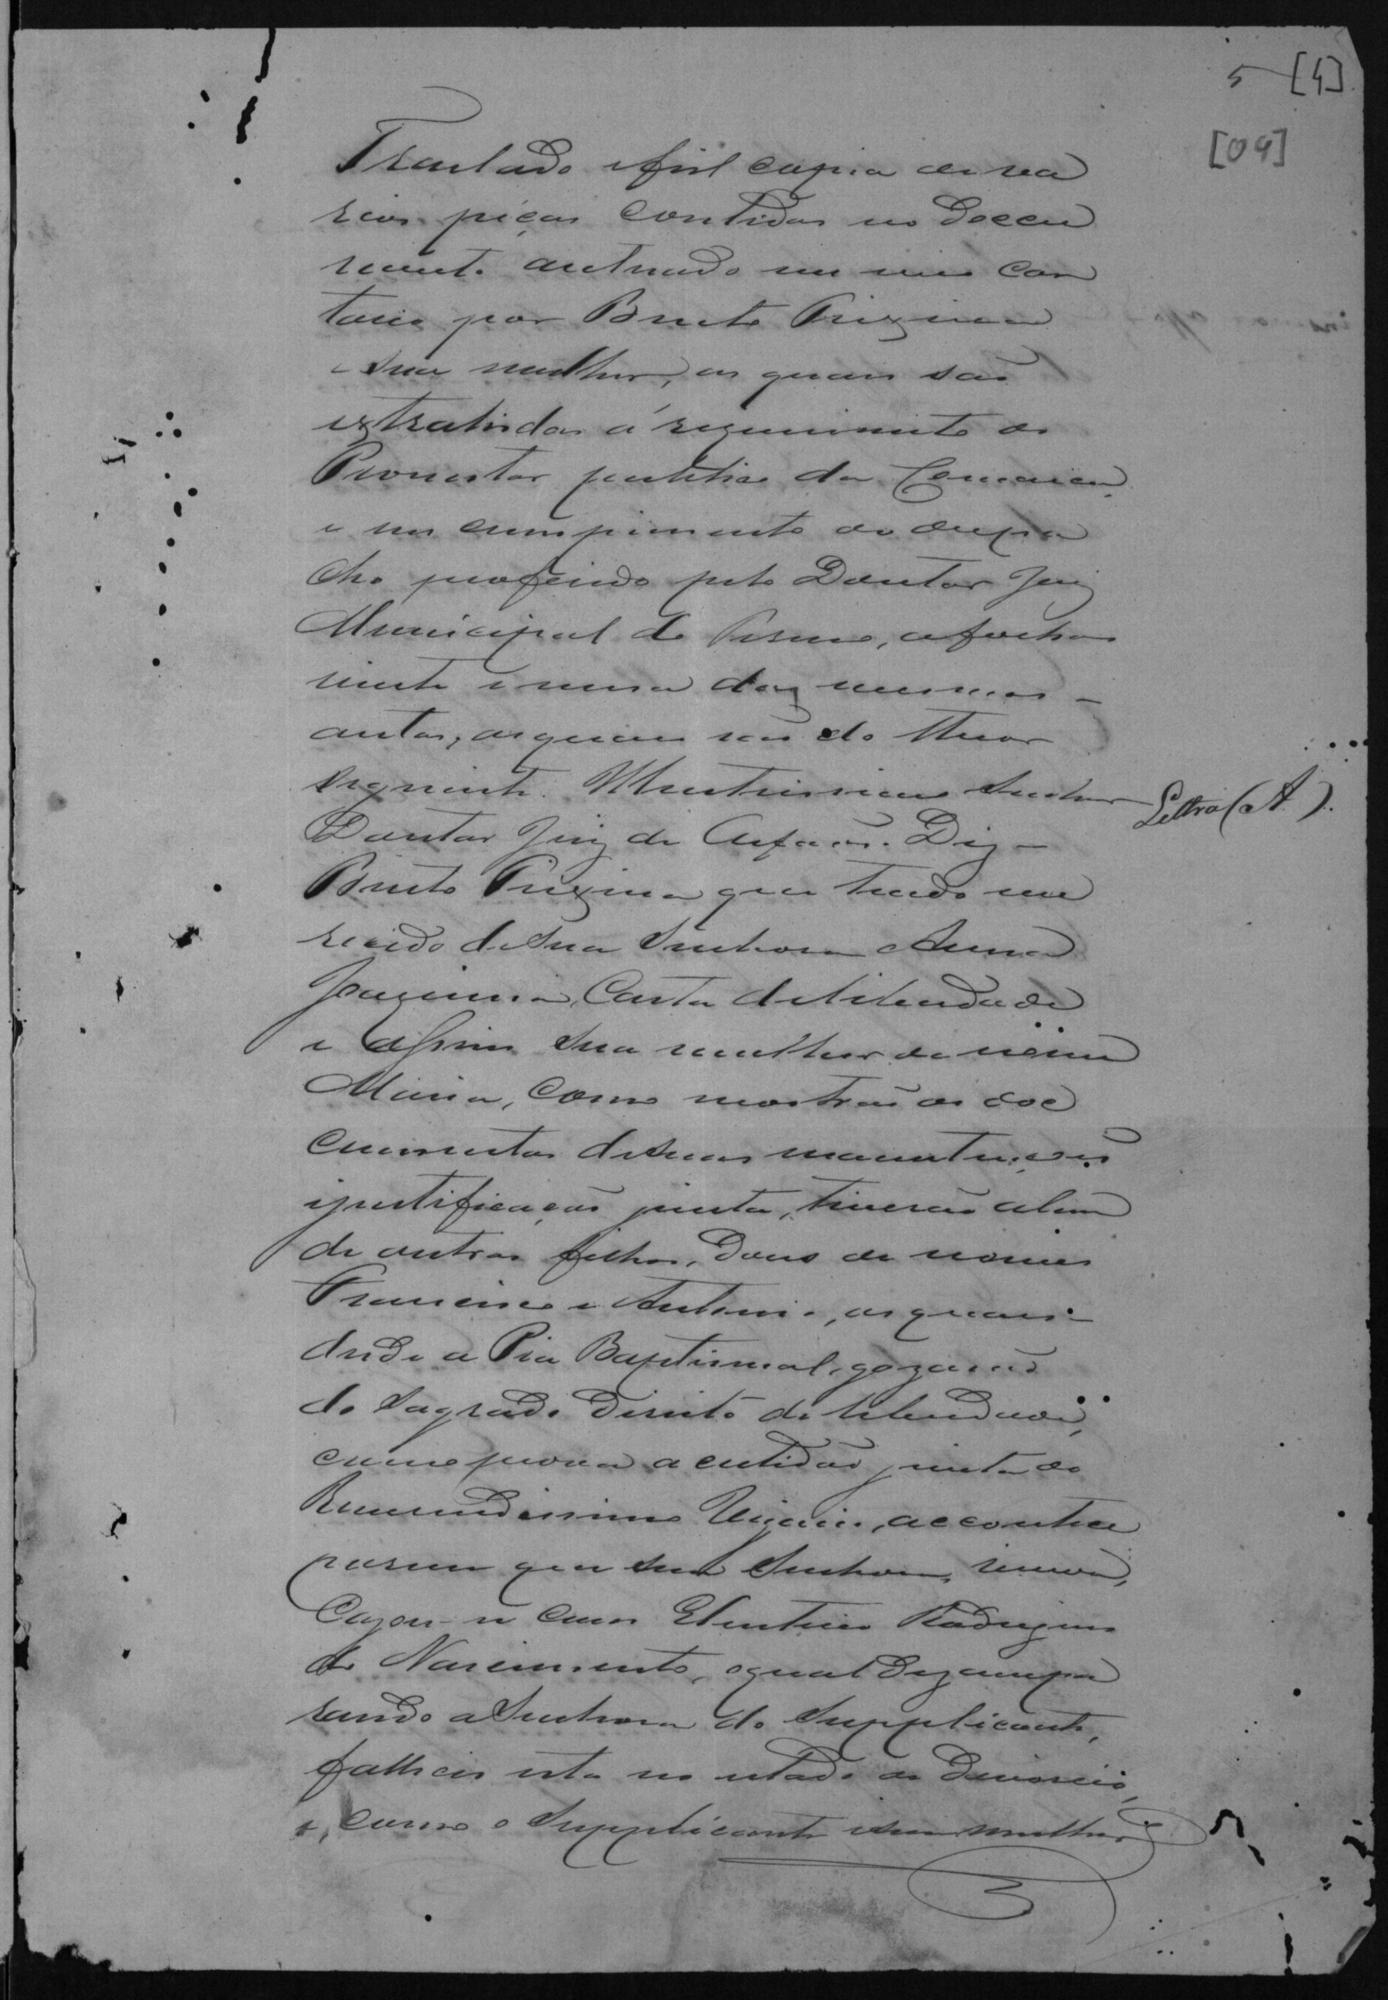 5 [4]
[04]
Traslado e fiel copia de va
rias peças contidas no Docu
mento autuado em meu Car
torio por Bruto Prizina
e sua mulher, as quais são
extrahidas á requerimento do
Promotor publico da Comarca,
e em cumprimento do despa
cho proferido pelo Doutor Juiz
Municipal do Termo, a folhas
vinte e nove dos mesmos
autos, as quaes são do theor
seguinte. Illustrissimo Senhor
Lettra (A).
Doutor Juiz de Orfãos. Diz
Bruto Prizina que tendo me
recido de sua Senhora Anna
Joaquina, Carta de liberdade
e assim sua mulher de nome
Maria, como mostrão os doc
cumentos de suas manutenções
e justificação junta, tiverão alem
de outros filhos, dous de nomes
Francisco e Antonio, os quais
desde a Pia Baptismal, gozarão
do Sagrado Direito de liberdade,
como prova a certidão junta do
Reverendissimo Vigario, accontece
porem que sua Senhora, viuva,
Cazou-se com Eleuterio Rodrigues
do Nascimento, o qual dezampa
rando a Senhora do Supplicante,
falleceu esta no estado de Divorcio,
e, como o Supplicante e sua mulher